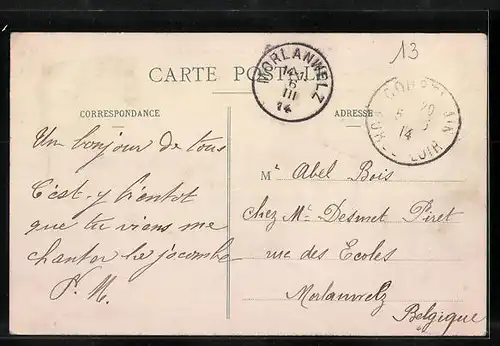 13
CARTE POSTALE
MORLANWELZ
6
III
14
14
LOIR
CORRESPONDANCE
ADRESSE
Un bonjour de tous
C'est-y bientot
que tu viens me
chanter
P. M.
Mr Abel Bois
chez Mr Desmet Piret
rue des Ecoles
Morlanwelz
Belgique